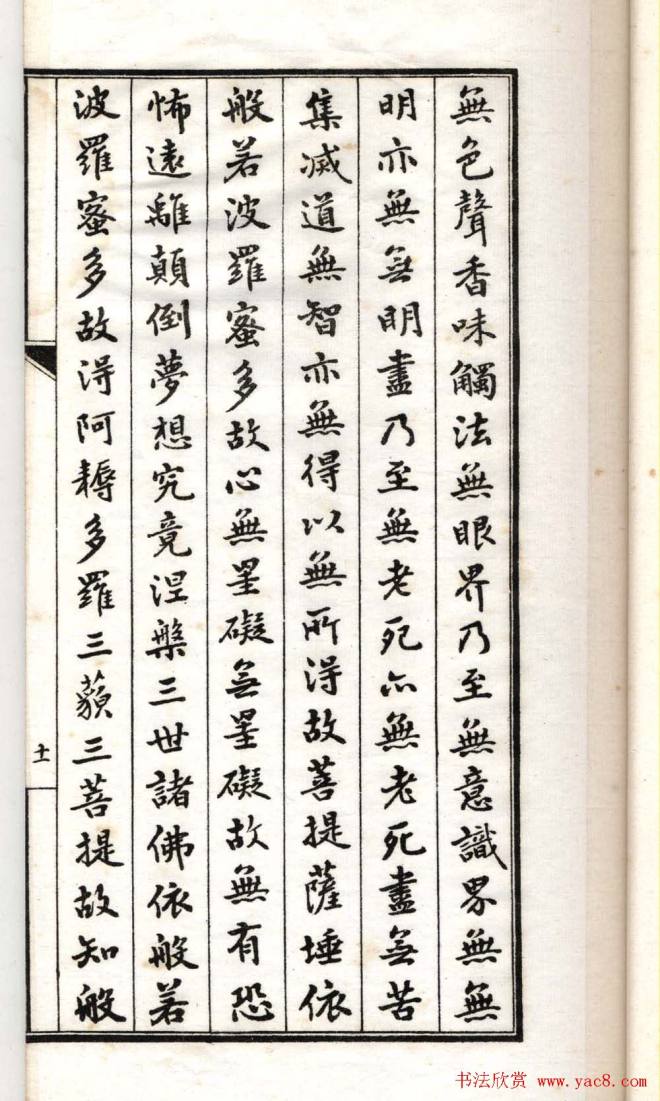 無色聲香味觸法無眼界乃至無意識界無無
明亦無無明盡乃至無老死亦無老死盡無苦
集滅道無智亦無得以無所得故菩提薩埵依
般若波羅蜜多故心無罣礙無罣礙故無有恐
怖遠離顛倒夢想究竟涅槃三世諸佛依般若
波羅蜜多故得阿耨多羅三藐三菩提故知般
十一
书法欣赏 www.yac8.com